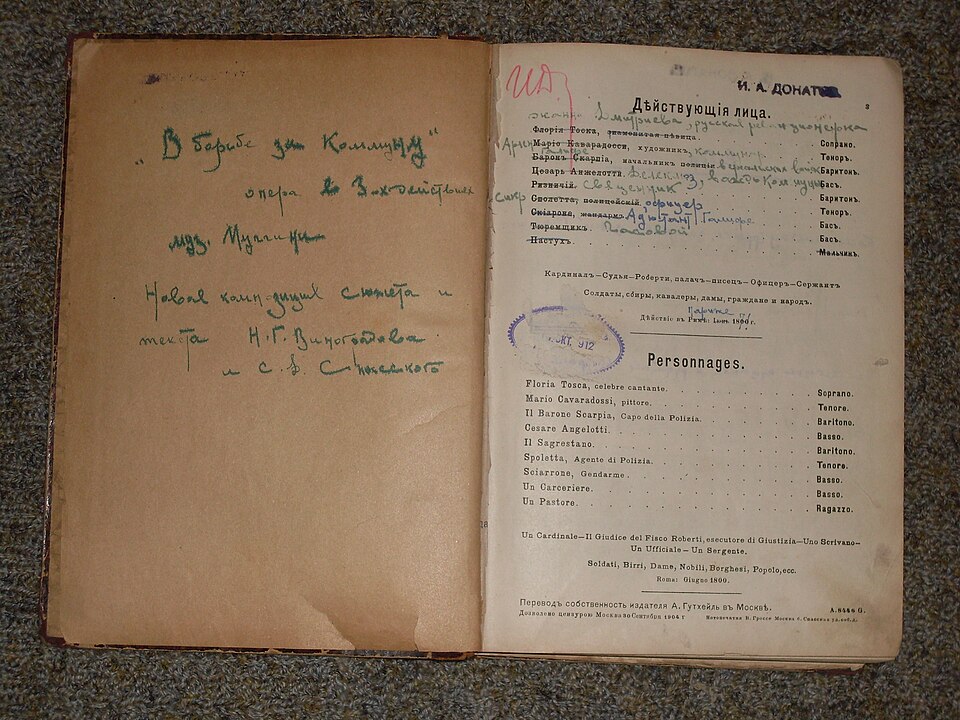 „В борьбе за Коммуну"
опера в 3х действиях
муз. Пуччини
Новая композиция сюжета и
текста Н.Г. Виноградова
и С. Д. Спасского
И. А. ДОНАТОВ
3
ИД
Дѣйствующія лица.
Дмитриева, русская рев
Флорія Тоска, знаменитая пѣвица. Сопрано.
Маріо Каварадосси, художникъ. коммунар Теноръ.
Баронъ Скарпіа, начальникъ полиціи Баритонъ.
Цезарь Анжелотти. Делеклюз, вождь коммуны Басъ.
Ризничій. Священник Баритонъ.
Сполетта, полицейскій. офицер Теноръ.
Скіароне, жандармъ. Адъютант Галифе Басъ.
Тюремщикъ. Часовой Басъ.
Пастухъ. Мальчикъ.
Кардиналъ—Судья—Роберти, палачъ—писецъ—Офицеръ—Сержантъ
Солдаты, сбиры, кавалеры, дамы, граждане и народъ.
Париже
Дѣйствіе въ Римѣ: Іюнь 1800 г.
ОКТ. 912
Personnages.
Floria Tosca, celebre cantante. Soprano.
Mario Cavaradossi, pittore. Tenore.
Il Barone Scarpia, Capo della Polizia. Baritono.
Cesare Angelotti. Basso.
Il Sagrestano. Baritono.
Spoletta, Agente di Polizia. Tenore.
Sciarrone, Gendarme. Basso.
Un Carceriere. Basso.
Un Pastore. Ragazzo.
Un Cardinale—Il Giudice del Fisco Roberti, esecutore di Giustizia—Uno Scrivano—
Un Ufficiale—Un Sergente.
Soldati, Birri, Dame, Nobili, Borghesi, Popolo, ecc.
Roma: Giugno 1800.
Переводъ собственность издателя А. Гутхейль въ Москвѣ. А. 8446 G.
Дозволено цензурою Москва 30 Сентября 1904 г Нотопечатня В. Гроссе Москва б. Спасская ул. соб. д.